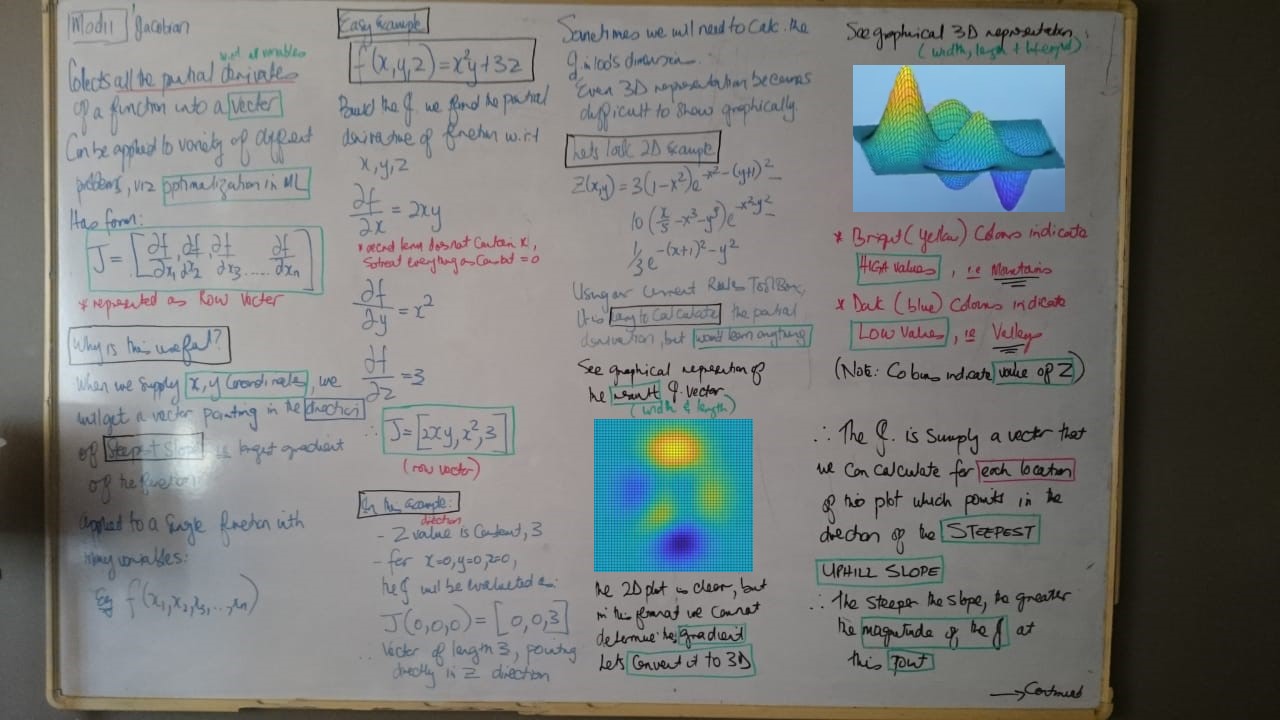 Mod11 Jacobian
w.r.t. all variables
Collects all the partial derivates
of a function into a vector
Can be applied to variety of different
problems, viz optimalization in ML
Has form:
J = [∂f/∂x1, ∂f/∂x2, ∂f/∂x3 ...... ∂f/∂xn]
* represented as Row Vector
Why is this useful?
When we supply x, y coordinates, we
will get a vector pointing in the direction
of steepest slope ie largest gradient
of the function
applied to a single function with
many variables:
Eg f(x1, x2, x3, .., xn)
Easy Example
f(x,y,z) = x²y + 3z
Build the J we find the partial
derivative of function w.r.t
x, y, z
∂f/∂x = 2xy
* second term does not contain x,
So treat everything as Constant = 0
∂f/∂y = x²
∂f/∂z = 3
∴ J = [2xy, x², 3]
(row vector)
In this example:
direction
- Z value is Constant, 3
- for x=0, y=0, z=0,
the J will be evaluated as:
J(0,0,0) = [0,0,3]
∴ Vector of length 3, pointing
directly in Z direction
Sometimes we will need to calc. the
J in lods dimensions.
Even 3D representation becomes
difficult to show graphically.
Lets look 2D Example
Z(x,y) = 3(1-x²)e^-x²-(y+1)² -
10(x/5 - x³ - y⁵)e^-x²y² -
1/3 e^-(x+1)²-y²
Using our Current Rules ToolBox,
it is long to Calculate the partial
derivation, but won't learn anything
See graphical representation of
the result J. vector
(width & length)
the 2D plot is clear, but
in this format we cannot
determine the gradient
Lets Convert it to 3D
See graphical 3D representation,
(width, length +
* Bright (yellow) Colours indicate
HIGH values, i.e Mountains
* Dark (blue) Colours indicate
Low Values, ie Valleys
(Note: Colours indicate value of Z)
∴ The J. is Simply a vector that
we can calculate for each location
of this plot which points in the
direction of the STEEPEST
UPHILL SLOPE
∴ the steeper the slope, the greater
the magnitude of the J at
this point
→ Continued